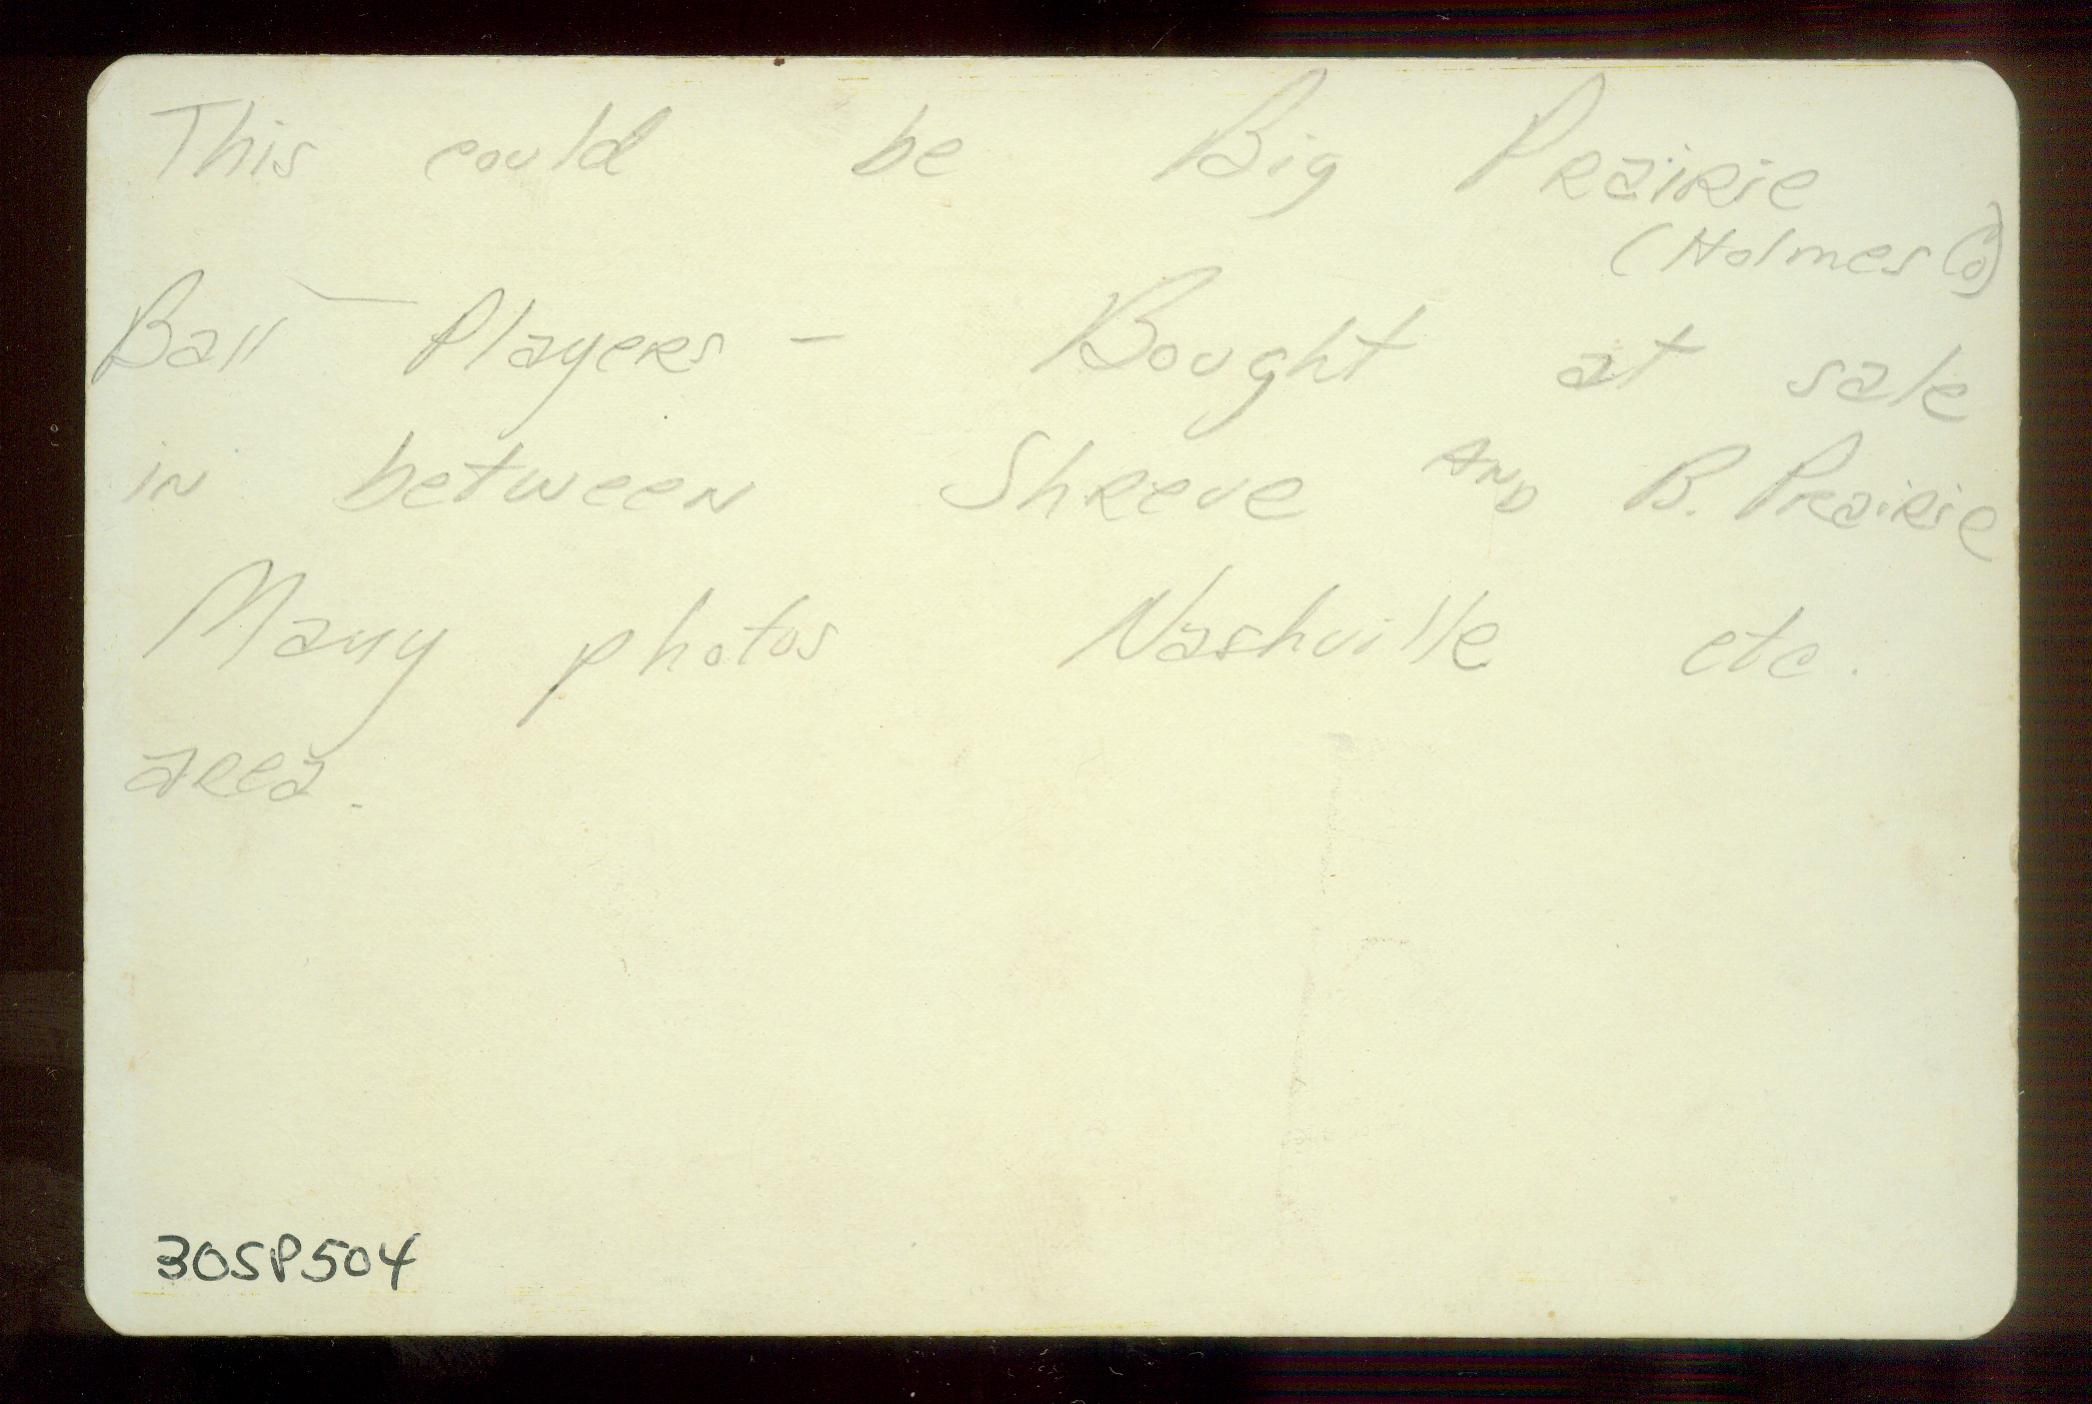 This could be Big Prairie
(Holmes Co)
Ball Players - Bought at sale
in between Shreve AND B. Prairie
Many photos Nashville etc.
area.
30SP504